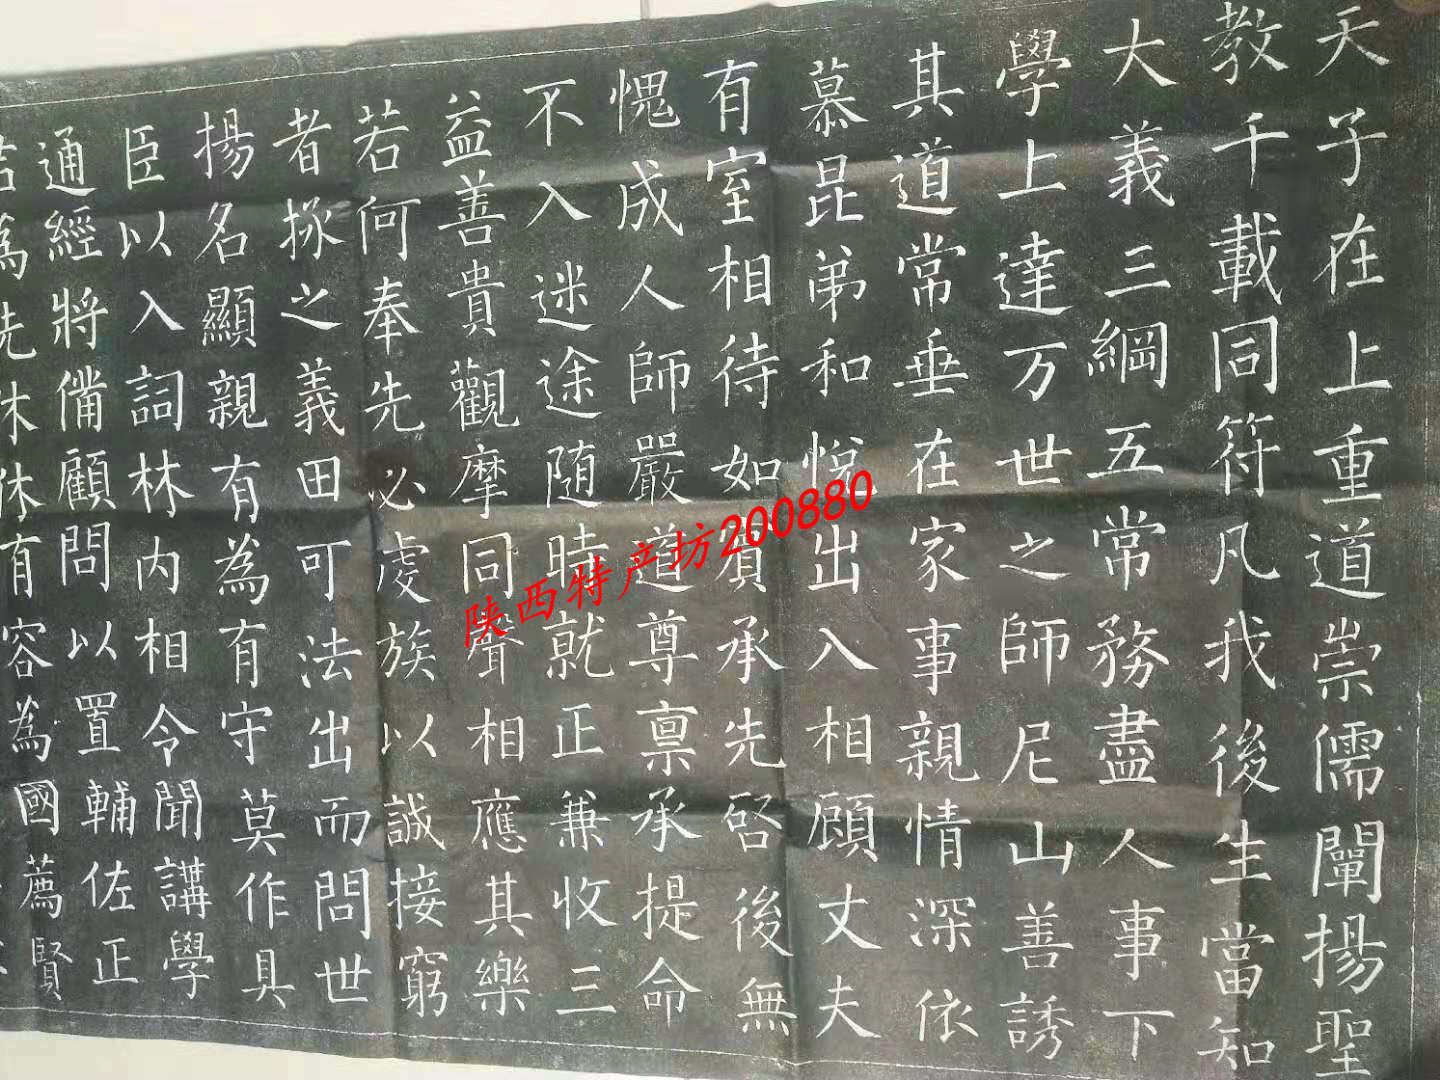 天子在上重道崇儒闡揚聖
教千載同符凡我後生當知
大義三綱五常務盡人事下
學上達万世之師尼山善誘
其道常垂在家事親情深依
慕昆弟和悅出入相顧丈夫
有室相待如賓承先啓後無
愧成人師嚴道尊禀承提命
不入迷途随時就正兼收三
益善貴觀摩同聲相應其樂
若何奉先必虔族以誠接窮
者揔之義田可法出而問世
揚名顯親有為有守莫作具
臣以入詞林内相令聞講學
通經將備顧問以置輔佐正
為先休休有容為國薦賢
陕西特产坊200880